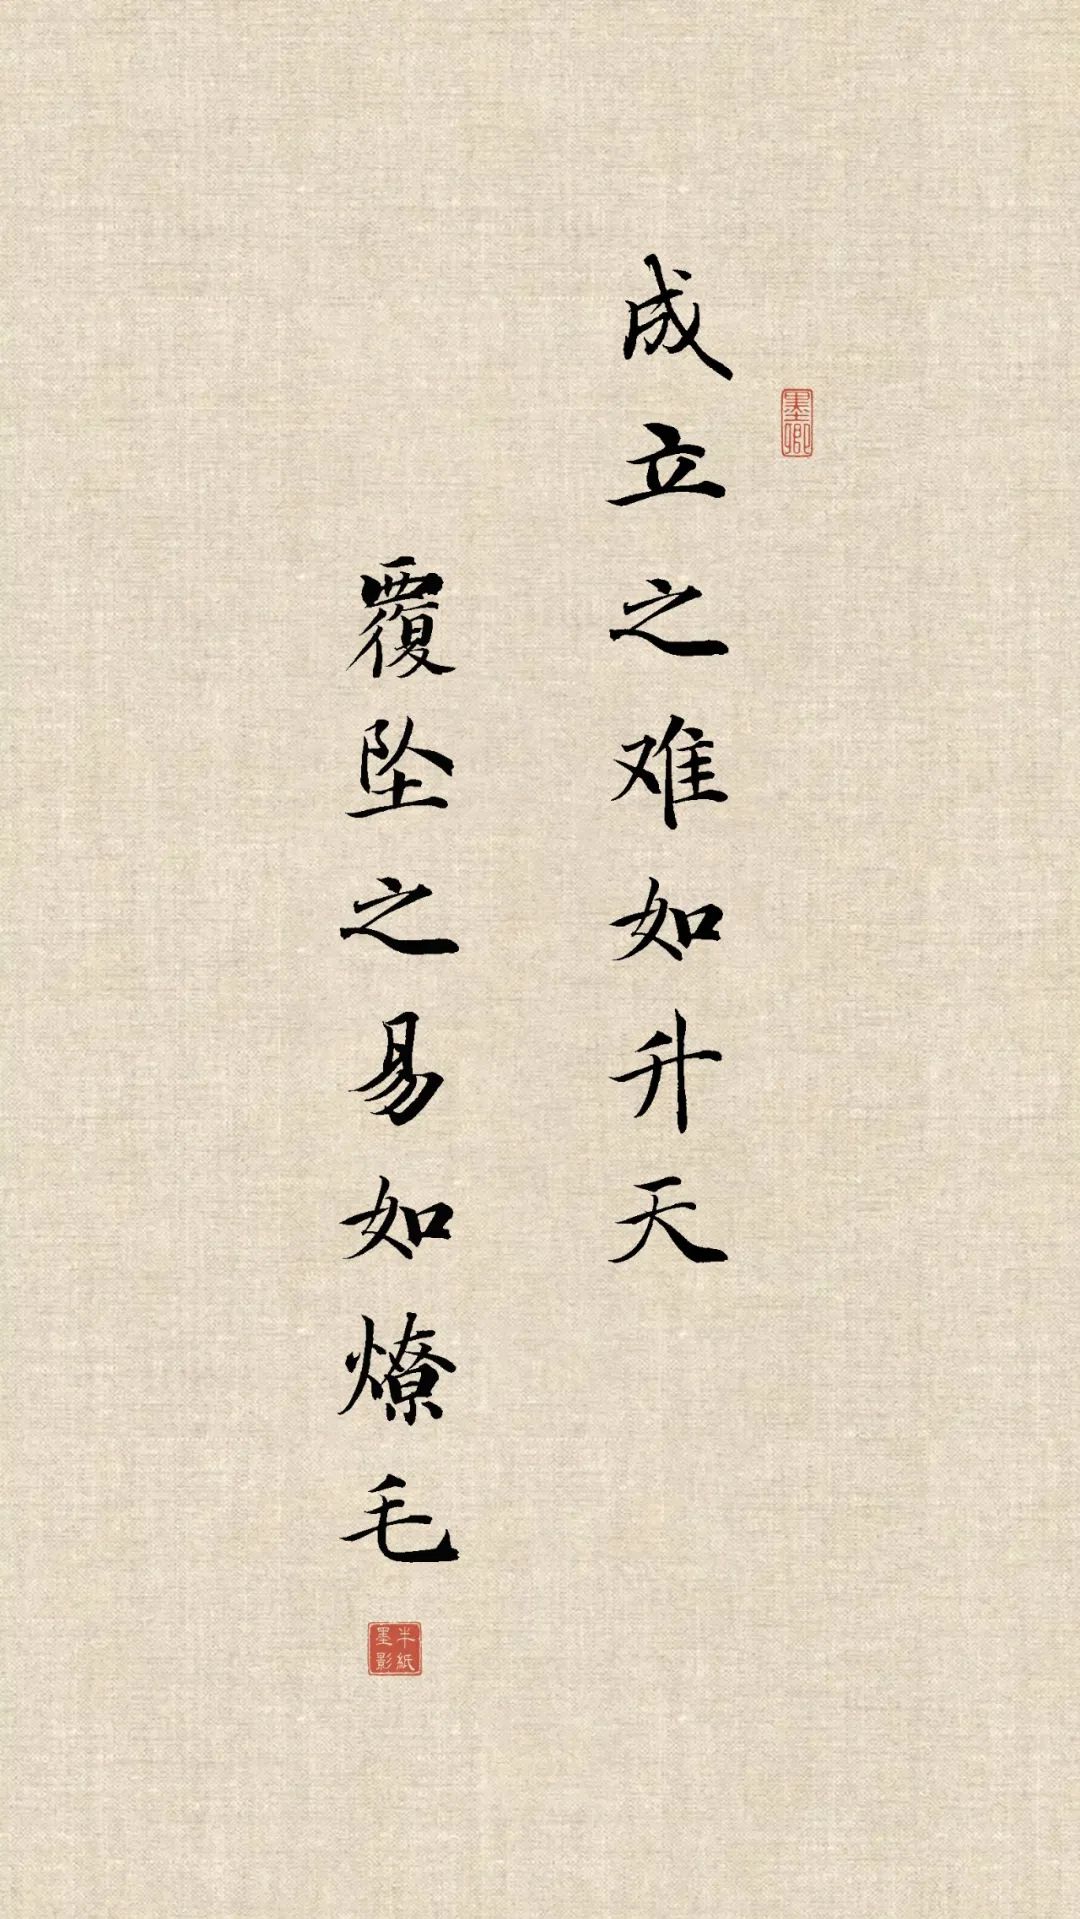 成立之难如升天
覆坠之易如燎毛
墨卿
墨影